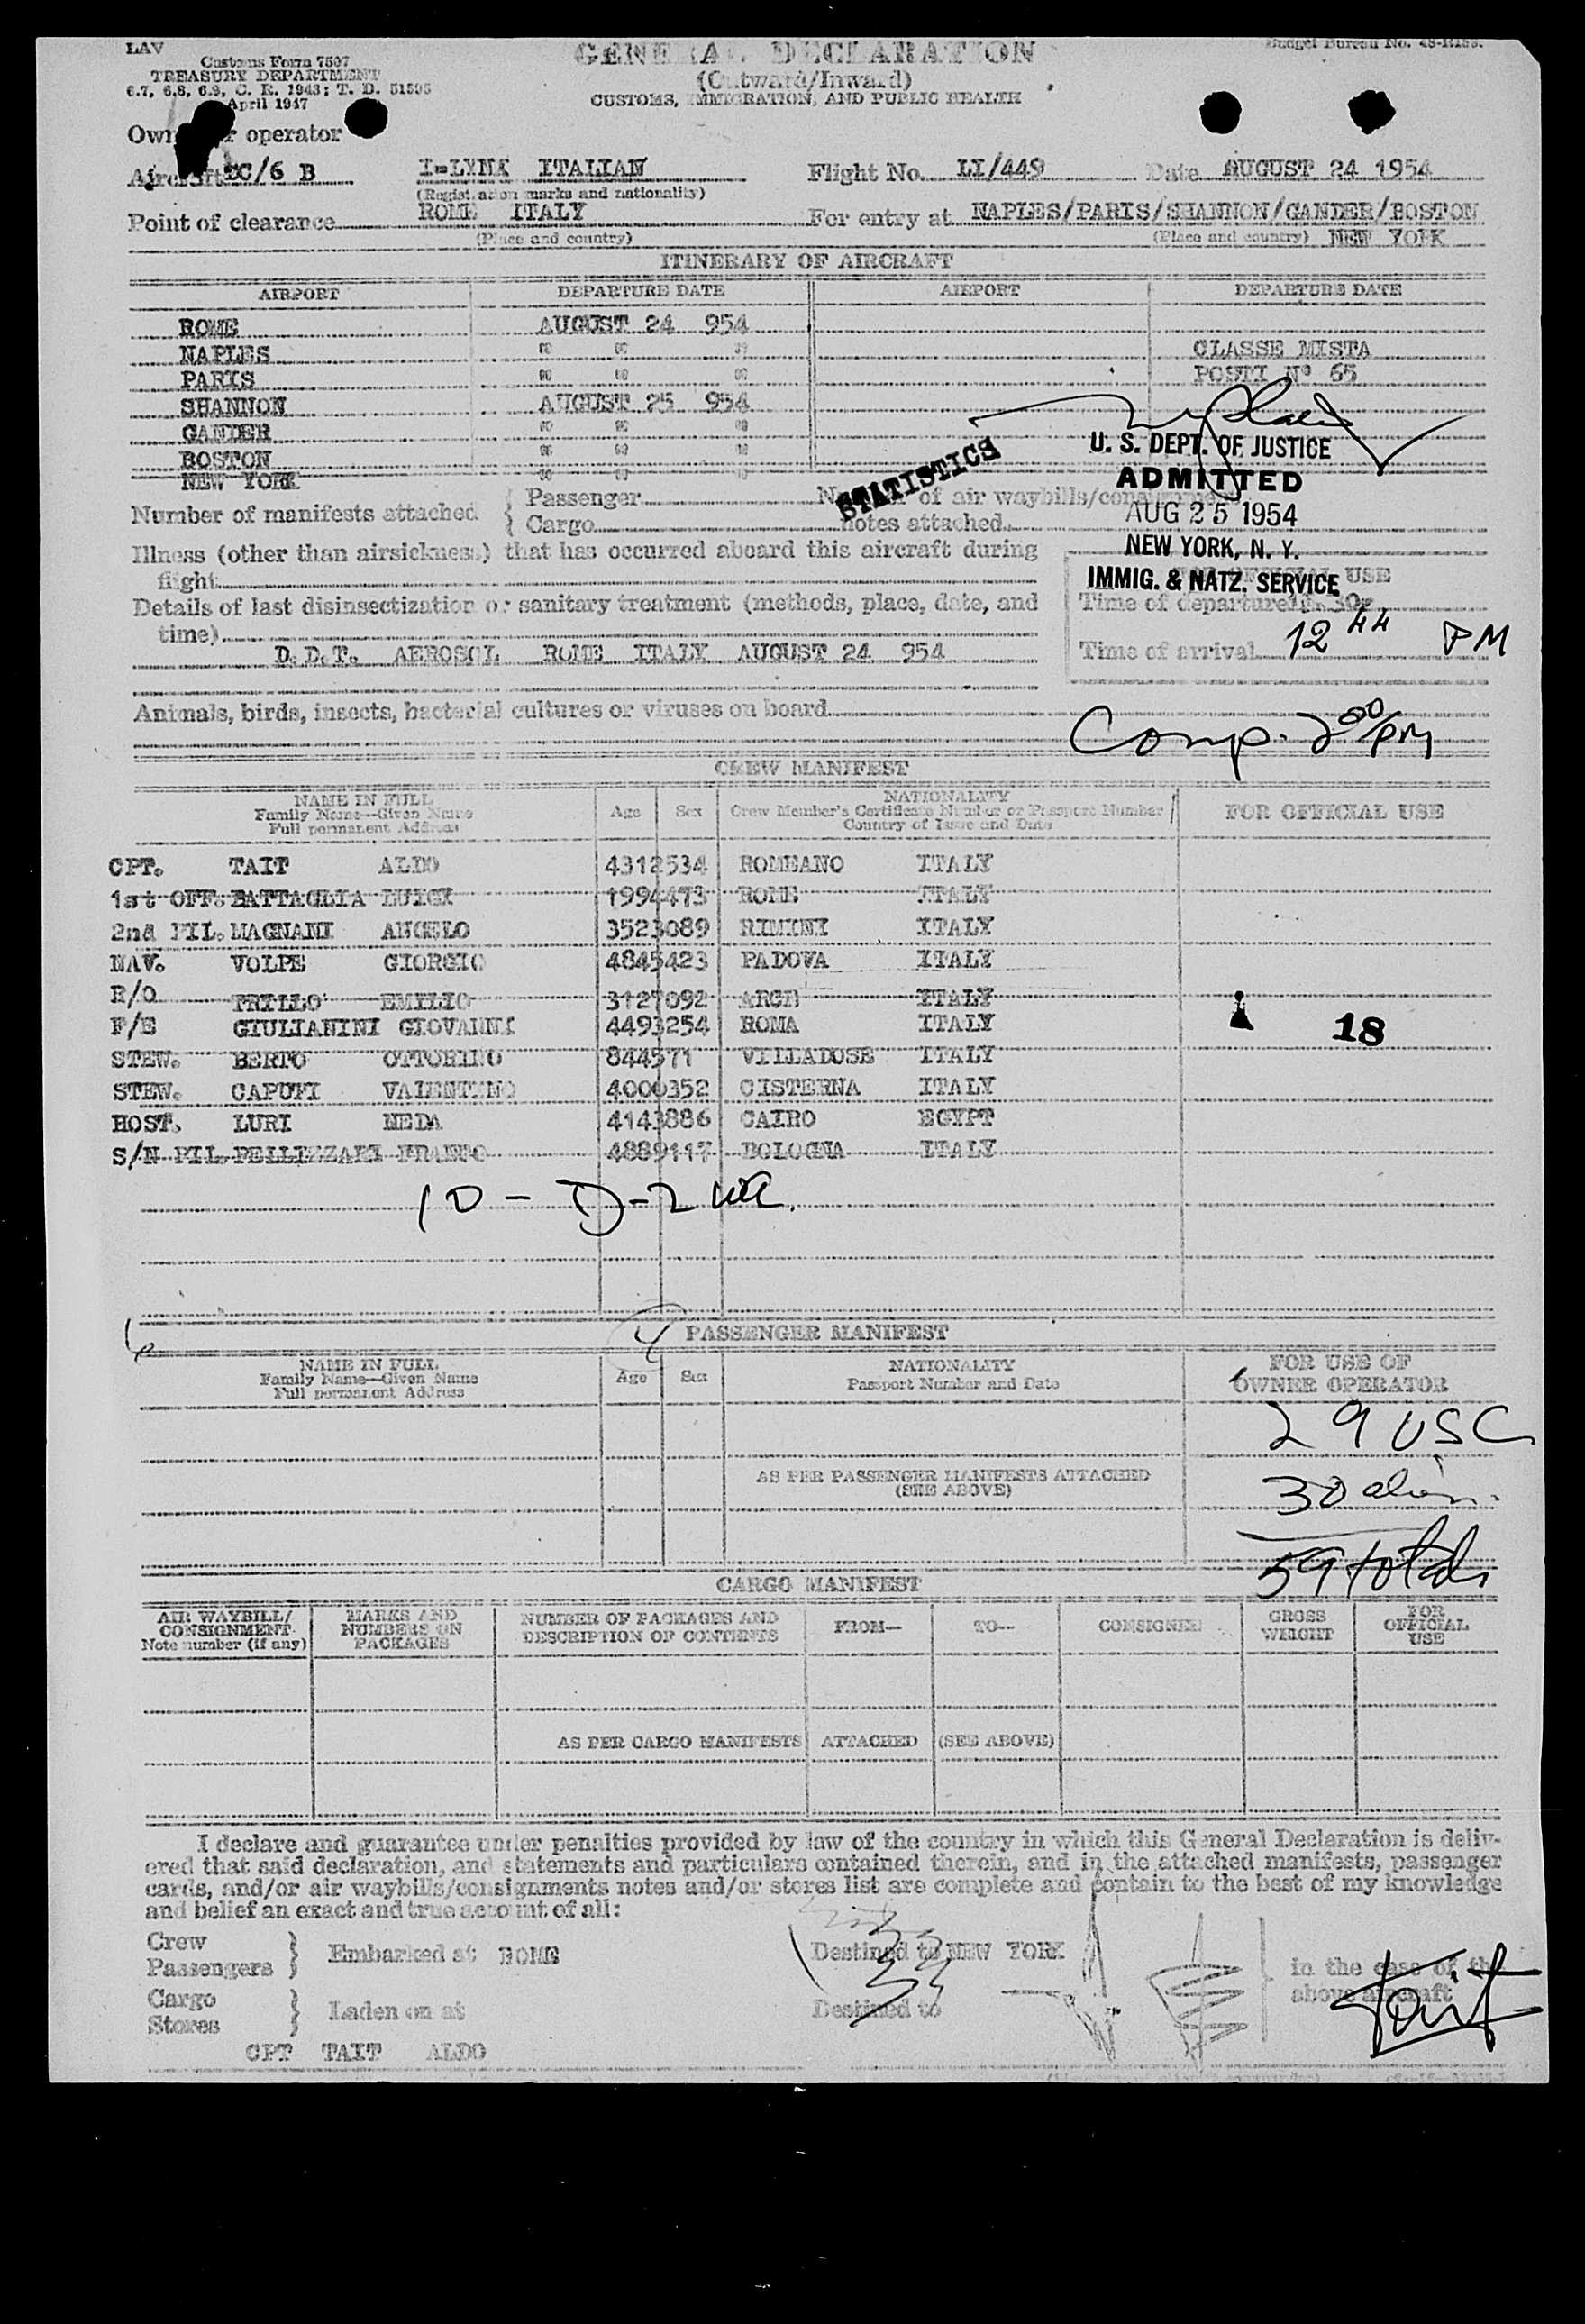 LAV
Customs Form 7507
TREASURY DEPARTMENT
6.7, 6.8, 6.9, C. R. 1943; T. D. 51595
April 1947
GENERAL DECLARATION
(Outward/Inward)
CUSTOMS, IMMIGRATION, AND PUBLIC HEALTH
Budget Bureau No.
operator
Aircraft C/6 B I-LYNK ITALIAN Flight No. LI/449 Date AUGUST 24 1954
(Registration marks and nationality)
Point of clearance ROME ITALY For entry at NAPLES/PARIS/SHANNON/GANDER/BOSTON
(Place and country) (Place and country) NEW YORK
ITINERARY OF AIRCRAFT
AIRPORT DEPARTURE DATE AIRPORT DEPARTURE DATE
ROME AUGUST 24 954
NAPLES " " " CLASSE MISTA
PARIS " " " POSTI N° 65
SHANNON AUGUST 25 954
GANDER " " "
BOSTON " " "
NEW YORK " " "
STATISTICS
U. S. DEPT. OF JUSTICE
ADMITTED
AUG 25 1954
NEW YORK, N. Y.
IMMIG. & NATZ. SERVICE
Number of manifests attached { Passenger of air waybills/
Cargo notes attached
Illness (other than airsickness) that has occurred aboard this aircraft during
flight
USE
Details of last disinsectization or sanitary treatment (methods, place, date, and
time)
Time of departure
D.D.T. AEROSOL ROME ITALY AUGUST 24 954
Time of arrival 12 44 PM
Animals, birds, insects, bacterial cultures or viruses on board
Comp. 2 00/PM
CREW MANIFEST
NAME IN FULL
Family Name—Given Name
Full permanent Address
Age Sex
NATIONALITY
Crew Member's Certificate Number or Passport Number
Country of Issue and Date
FOR OFFICIAL USE
CPT. TAIT ALDO 4312534 ROMEANO ITALY
1st OFF. BATTAGLIA LUIGI 1994473 ROME ITALY
2nd PIL. MAGNANI ANGELO 3523089 RIMINI ITALY
NAV. VOLPE GIORGIO 4845423 PADOVA ITALY
R/O PRILLO EMILIO 3127092 ARCE ITALY
F/E GIULIANINI GIOVANNI 4493254 ROMA ITALY
18
STEW. BERTO OTTORINO 844571 VILLADOSE ITALY
STEW. CAPUPI VALENTINO 4000352 CISTERNA ITALY
HOST. LURI NEDA 4143886 CAIRO EGYPT
S/N PIL. PELLIZZARI FRANCO 4889117 BOLOGNA ITALY
10 - D-2
4
PASSENGER MANIFEST
NAME IN FULL
Family Name—Given Name
Full permanent Address
Age Sex
NATIONALITY
Passport Number and Date
FOR USE OF
OWNER OPERATOR
29 USC
AS PER PASSENGER MANIFESTS ATTACHED
(SEE ABOVE)
30 alien
59 total
CARGO MANIFEST
AIR WAYBILL/
CONSIGNMENT
Note number (if any)
MARKS AND
NUMBERS ON
PACKAGES
NUMBER OF PACKAGES AND
DESCRIPTION OF CONTENTS
FROM— TO— CONSIGNEE
GROSS
WEIGHT
FOR
OFFICIAL
USE
AS PER CARGO MANIFESTS ATTACHED (SEE ABOVE)
I declare and guarantee under penalties provided by law of the country in which this General Declaration is deliv-
ered that said declaration, and statements and particulars contained therein, and in the attached manifests, passenger
cards, and/or air waybills/consignments notes and/or stores list are complete and contain to the best of my knowledge
and belief an exact and true account of all:
Crew
Passengers } Embarked at ROME Destined to NEW YORK
in the case of the
above aircraft
Cargo
Stores } Laden on at Destined to
Tait
CPT TAIT ALDO